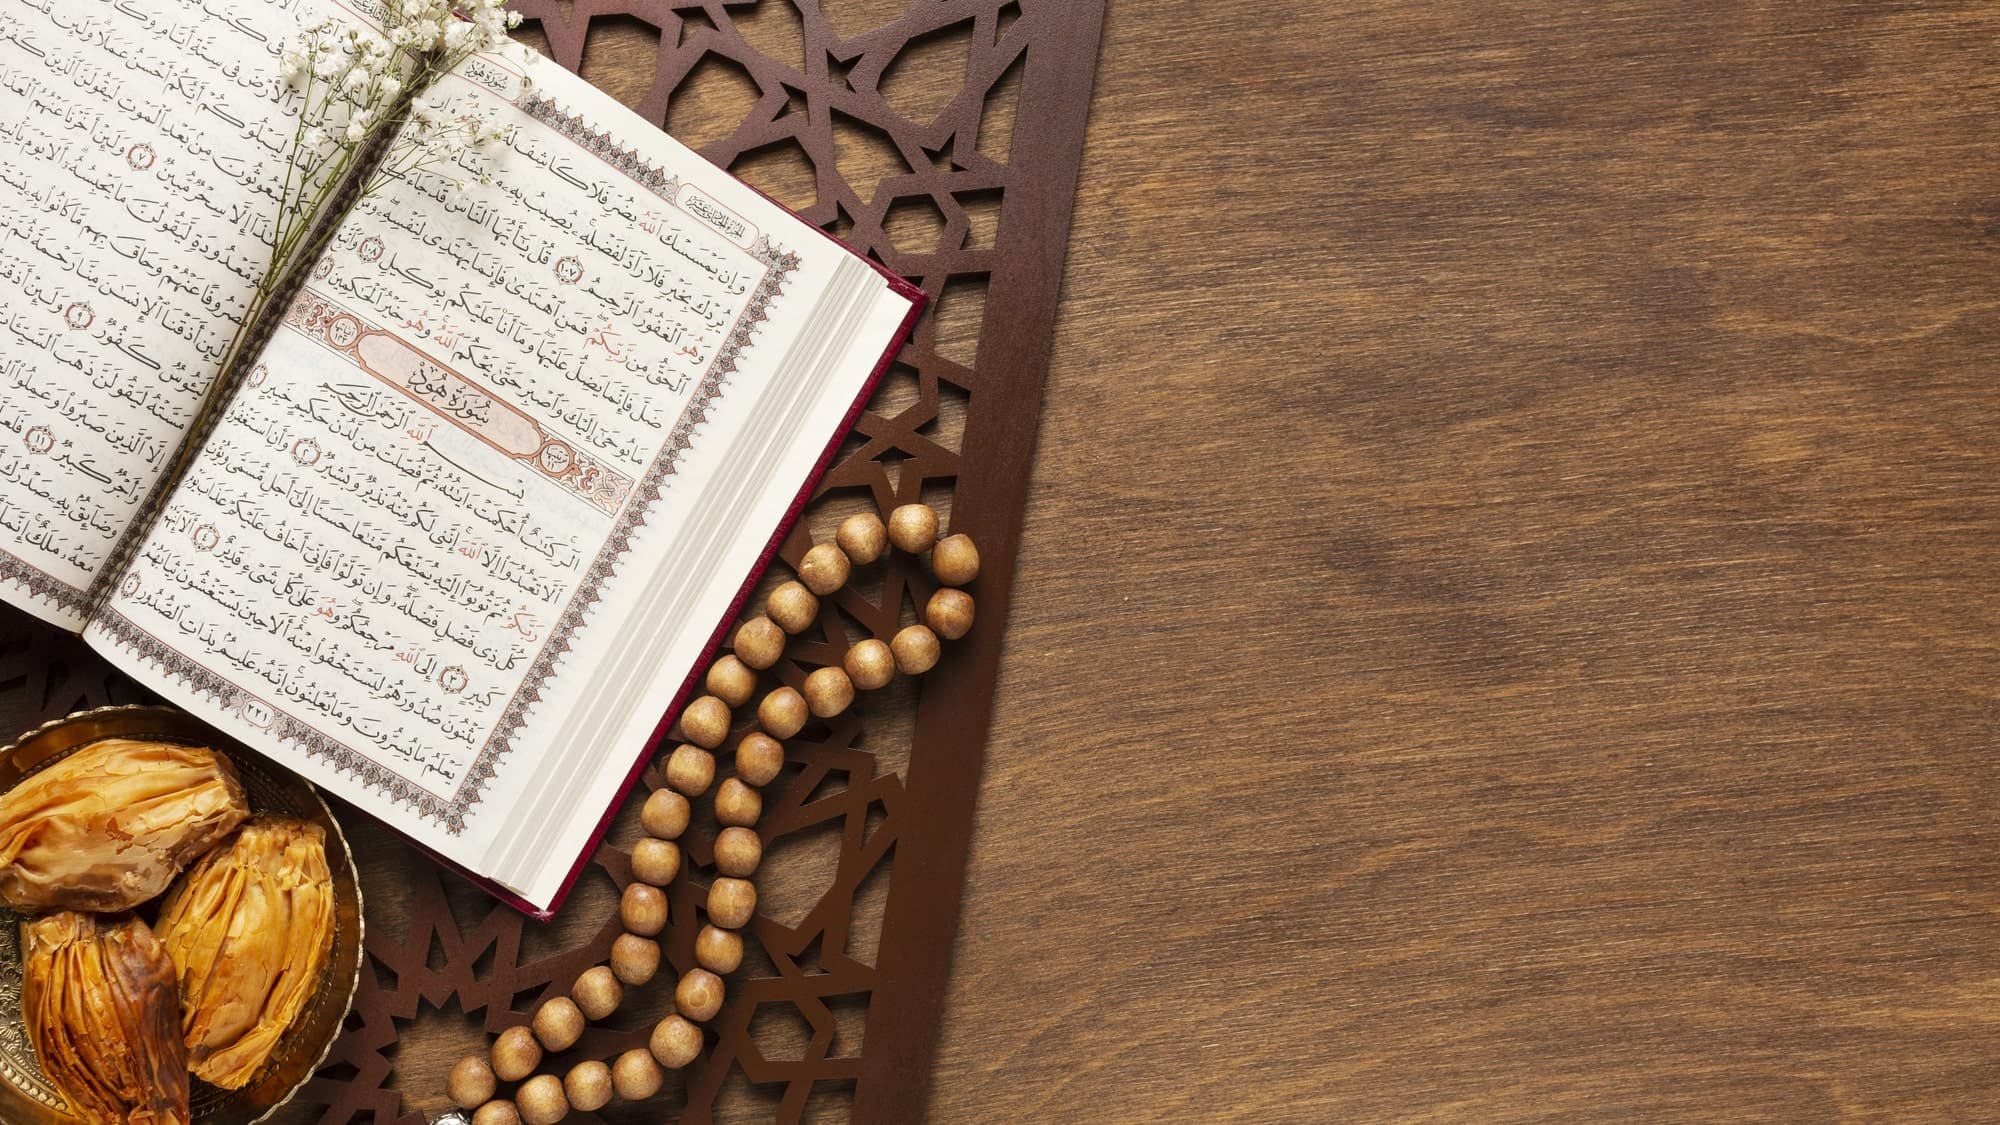 سُورَةُ هُودٍ
الجزء الحادي عشر
وَإِن يَمْسَسْكَ ٱللَّهُ بِضُرٍّ فَلَا كَاشِفَ لَهُۥٓ هُوَ وَإِن
يُرِدْكَ بِخَيْرٍ فَلَا رَآدَّ لِفَضْلِهِۦ ۚ يُصِيبُ بِهِۦ مَن يَشَآءُ
وَهُوَ ٱلْغَفُورُ ٱلرَّحِيمُ ١٠٧ قُلْ يَٰٓأَيُّهَا ٱلنَّاسُ قَدْ جَآءَ
ٱلْحَقُّ مِن رَّبِّكُمْ ۖ فَمَنِ ٱهْتَدَىٰ فَإِنَّمَا يَهْتَدِى لِنَفْسِهِۦ ۖ وَمَن
ضَلَّ فَإِنَّمَا يَضِلُّ عَلَيْهَا ۖ وَمَآ أَنَا۠ عَلَيْكُم بِوَكِيلٍ ١٠٨ وَٱتَّبِعْ
مَا يُوحَىٰٓ إِلَيْكَ وَٱصْبِرْ حَتَّىٰ يَحْكُمَ ٱللَّهُ ۚ وَهُوَ خَيْرُ ٱلْحَٰكِمِينَ ١٠٩
ترتيبها ١١ سُورَةُ هُودٍ آياتها ١٢٣
بِسْمِ ٱللَّهِ ٱلرَّحْمَٰنِ ٱلرَّحِيمِ
الٓر ۚ كِتَٰبٌ أُحْكِمَتْ ءَايَٰتُهُۥ ثُمَّ فُصِّلَتْ مِن لَّدُنْ حَكِيمٍ خَبِيرٍ ١
أَلَّا تَعْبُدُوٓا۟ إِلَّا ٱللَّهَ ۚ إِنَّنِى لَكُم مِّنْهُ نَذِيرٌ وَبَشِيرٌ ٢ وَأَنِ ٱسْتَغْفِرُوا۟
رَبَّكُمْ ثُمَّ تُوبُوٓا۟ إِلَيْهِ يُمَتِّعْكُم مَّتَٰعًا حَسَنًا إِلَىٰٓ أَجَلٍ مُّسَمًّى وَيُؤْتِ
كُلَّ ذِى فَضْلٍ فَضْلَهُۥ ۖ وَإِن تَوَلَّوْا۟ فَإِنِّىٓ أَخَافُ عَلَيْكُمْ عَذَابَ يَوْمٍ
كَبِيرٍ ٣ إِلَى ٱللَّهِ مَرْجِعُكُمْ ۖ وَهُوَ عَلَىٰ كُلِّ شَىْءٍ قَدِيرٌ ٤ أَلَآ إِنَّهُمْ
يَثْنُونَ صُدُورَهُمْ لِيَسْتَخْفُوا۟ مِنْهُ ۚ أَلَا حِينَ يَسْتَغْشُونَ ثِيَابَهُمْ
يَعْلَمُ مَا يُسِرُّونَ وَمَا يُعْلِنُونَ ۚ إِنَّهُۥ عَلِيمٌۢ بِذَاتِ ٱلصُّدُورِ ٥
٢٢١
وَٱلْأَرْضَ فِى سِتَّةِ أَيَّامٍ وَكَانَ
ٱلْمَآءِ لِيَبْلُوَكُمْ أَيُّكُمْ أَحْسَنُ عَمَلًا ۗ وَلَئِن قُلْتَ
مَّبْعُوثُونَ مِنۢ بَعْدِ ٱلْمَوْتِ لَيَقُولَنَّ ٱلَّذِينَ كَفَرُ
هَٰذَآ إِلَّا سِحْرٌ مُّبِينٌ ٧ وَلَئِنْ أَخَّرْنَا عَنْهُمُ ٱلْعَذَا
مَّعْدُودَةٍ لَّيَقُولُنَّ مَا يَحْبِسُهُۥٓ ۗ أَلَا يَوْمَ يَأْتِيهِمْ
مَصْرُوفًا عَنْهُمْ وَحَاقَ بِهِم مَّا كَانُوا۟ بِهِۦ يَسْتَ
وَلَئِنْ أَذَقْنَا ٱلْإِنسَٰنَ مِنَّا رَحْمَةً ثُمَّ
لَيَـُٔوسٌ كَفُورٌ ٩ وَلَئِنْ أَذَقْنَٰ
مَسَّتْهُ لَيَقُولَنَّ ذَهَبَ ٱلسَّيِّـَٔا
إِلَّا ٱلَّذِينَ صَبَرُوا۟ وَعَمِلُوا۟
وَأَجْرٌ كَبِيرٌ ١١ فَلَعَ
وَضَآئِقٌۢ بِهِۦ صَدْرُكَ
مَعَهُۥ مَلَكٌ ۚ إِنَّمَآ